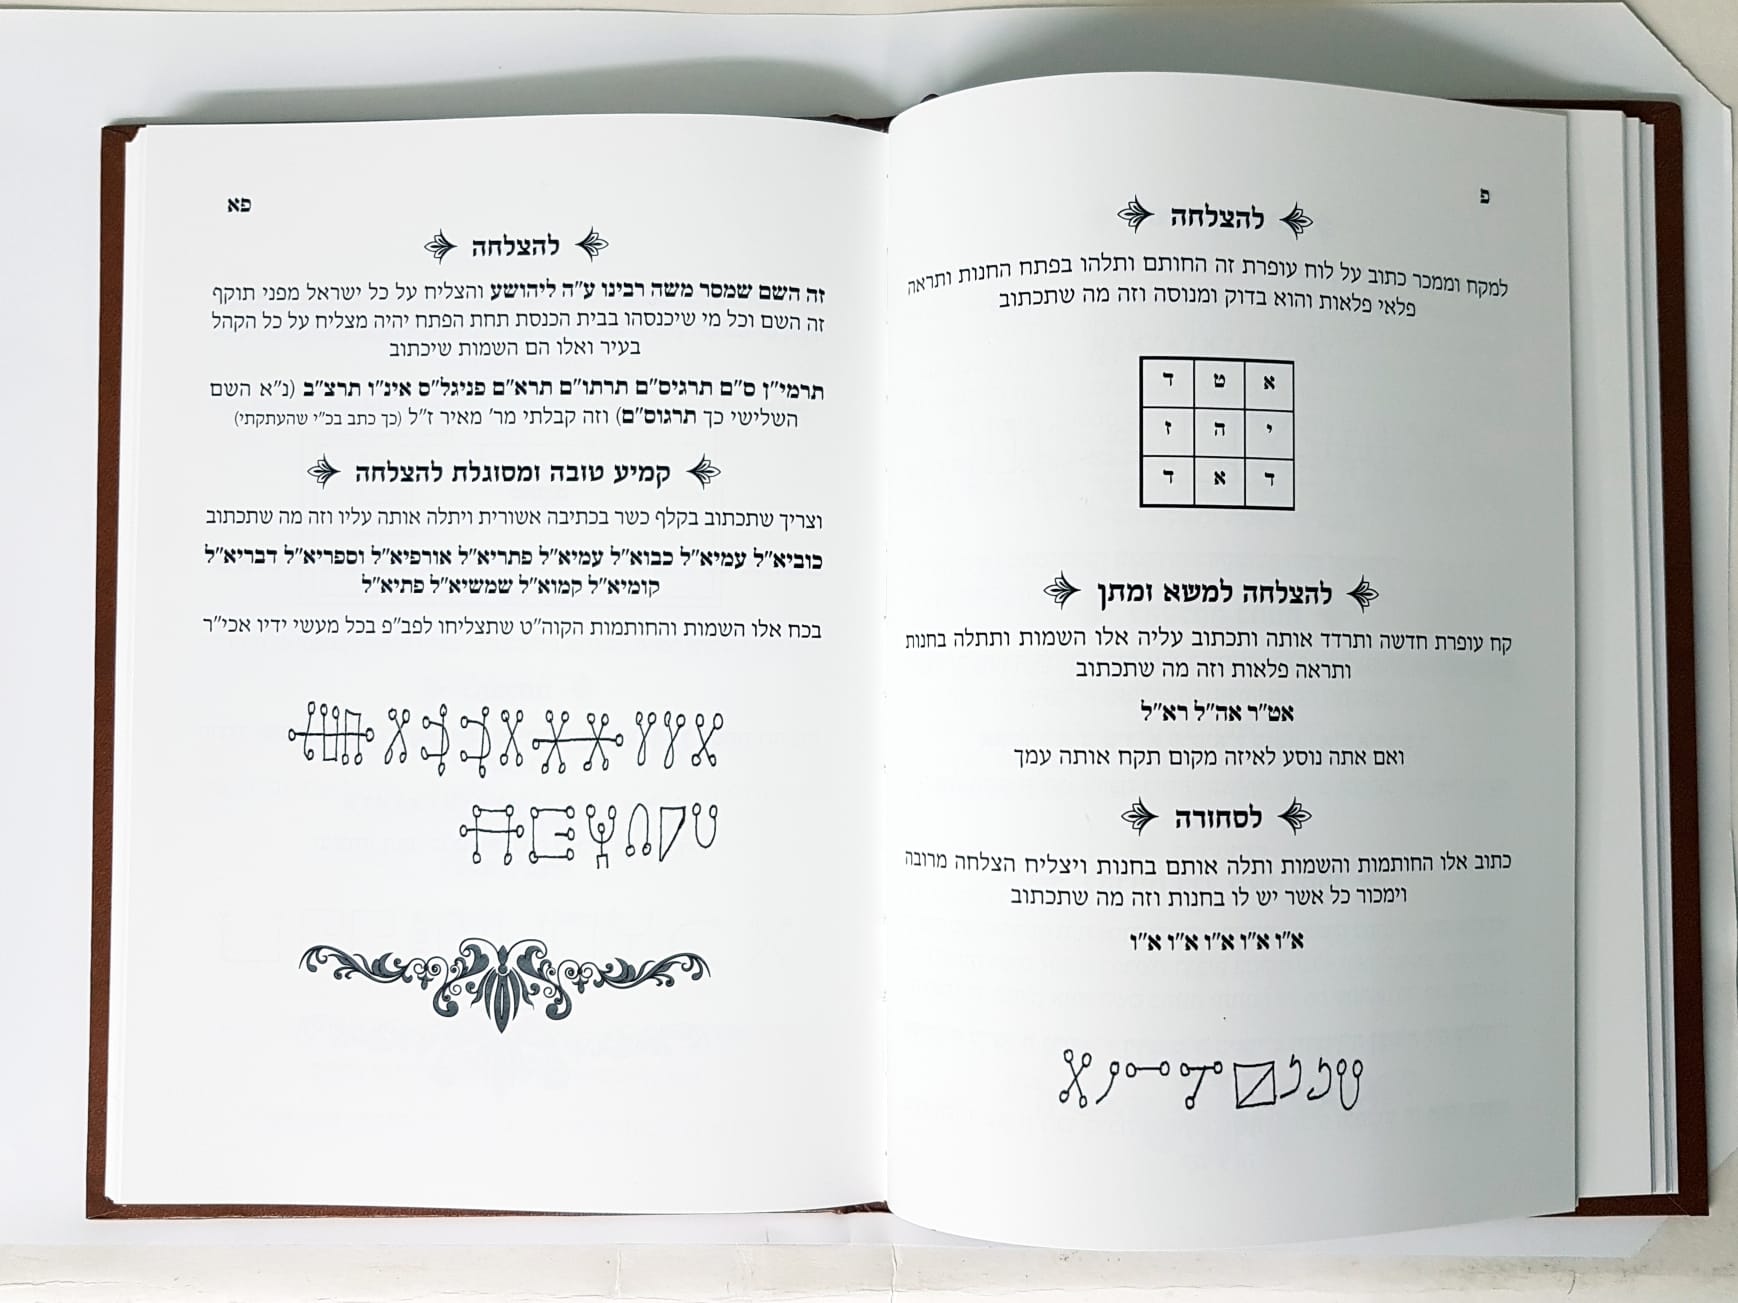 פ
להצלחה
למקח וממכר כתוב על לוח עופרת זה החותם ותלהו בפתח החנות ותראה
פלאי פלאות והוא בדוק ומנוסה וזה מה שתכתוב
א ט ד
י ה ז
ד א ד
להצלחה למשא ומתן
קח עופרת חדשה ותרדד אותה ותכתוב עליה אלו השמות ותתלה בחנות
ותראה פלאות וזה מה שתכתוב
אט"ר אה"ל רא"ל
ואם אתה נוסע לאיזה מקום תקח אותה עמך
לסחורה
כתוב אלו החותמות והשמות ותלה אותם בחנות ויצליח הצלחה מרובה
וימכור כל אשר יש לו בחנות וזה מה שתכתוב
א"ו א"ו א"ו א"ו א"ו
פא
להצלחה
זה השם שמסר משה רבינו ע"ה ליהושע והצליח על כל ישראל מפני תוקף
זה השם וכל מי שיכנסהו בבית הכנסת תחת הפתח יהיה מצליח על כל הקהל
בעיר ואלו הם השמות שיכתוב
תרמי"ן ס"ם תרגיס"ם תרתו"ם תרא"ם פניגל"ס אינ"ו תרצ"ב (נ"א השם
השלישי כך תרגוס"ם) וזה קבלתי מר' מאיר ז"ל (כך כתב בכ"י שהעתקתי)
קמיע טובה ומסוגלת להצלחה
וצריך שתכתוב בקלף כשר בכתיבה אשורית ויתלה אותה עליו וזה מה שתכתוב
כוביא"ל עמיא"ל כבוא"ל עמיא"ל פתריא"ל אורפיא"ל וספריא"ל דבריא"ל
קומיא"ל קמוא"ל שמשיא"ל פתיא"ל
בכח אלו השמות והחותמות הקוה"ט שתצליחו לפב"פ בכל מעשי ידיו אכי"ר